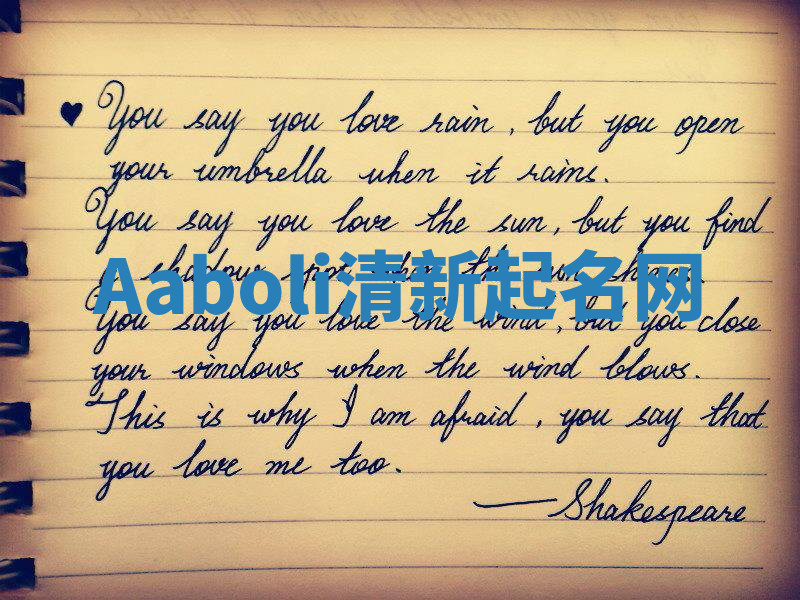 ♥ You say you love rain, but you open
your umbrella when it rains.
You say you love the sun, but you find
a shadow spot when the sun shines.
Aaboli清新起名网
You say you love the wind, but you close
your windows when the wind blows.
This is why I am afraid, you say that
you love me too.
—Shakespeare